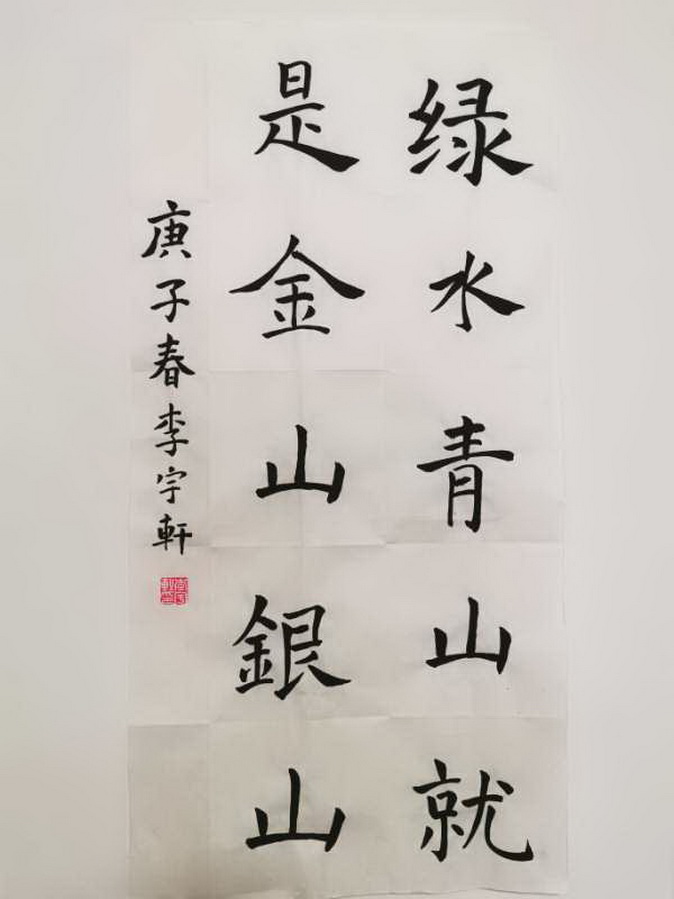 绿水青山就
是金山銀山
庚子春李宇軒